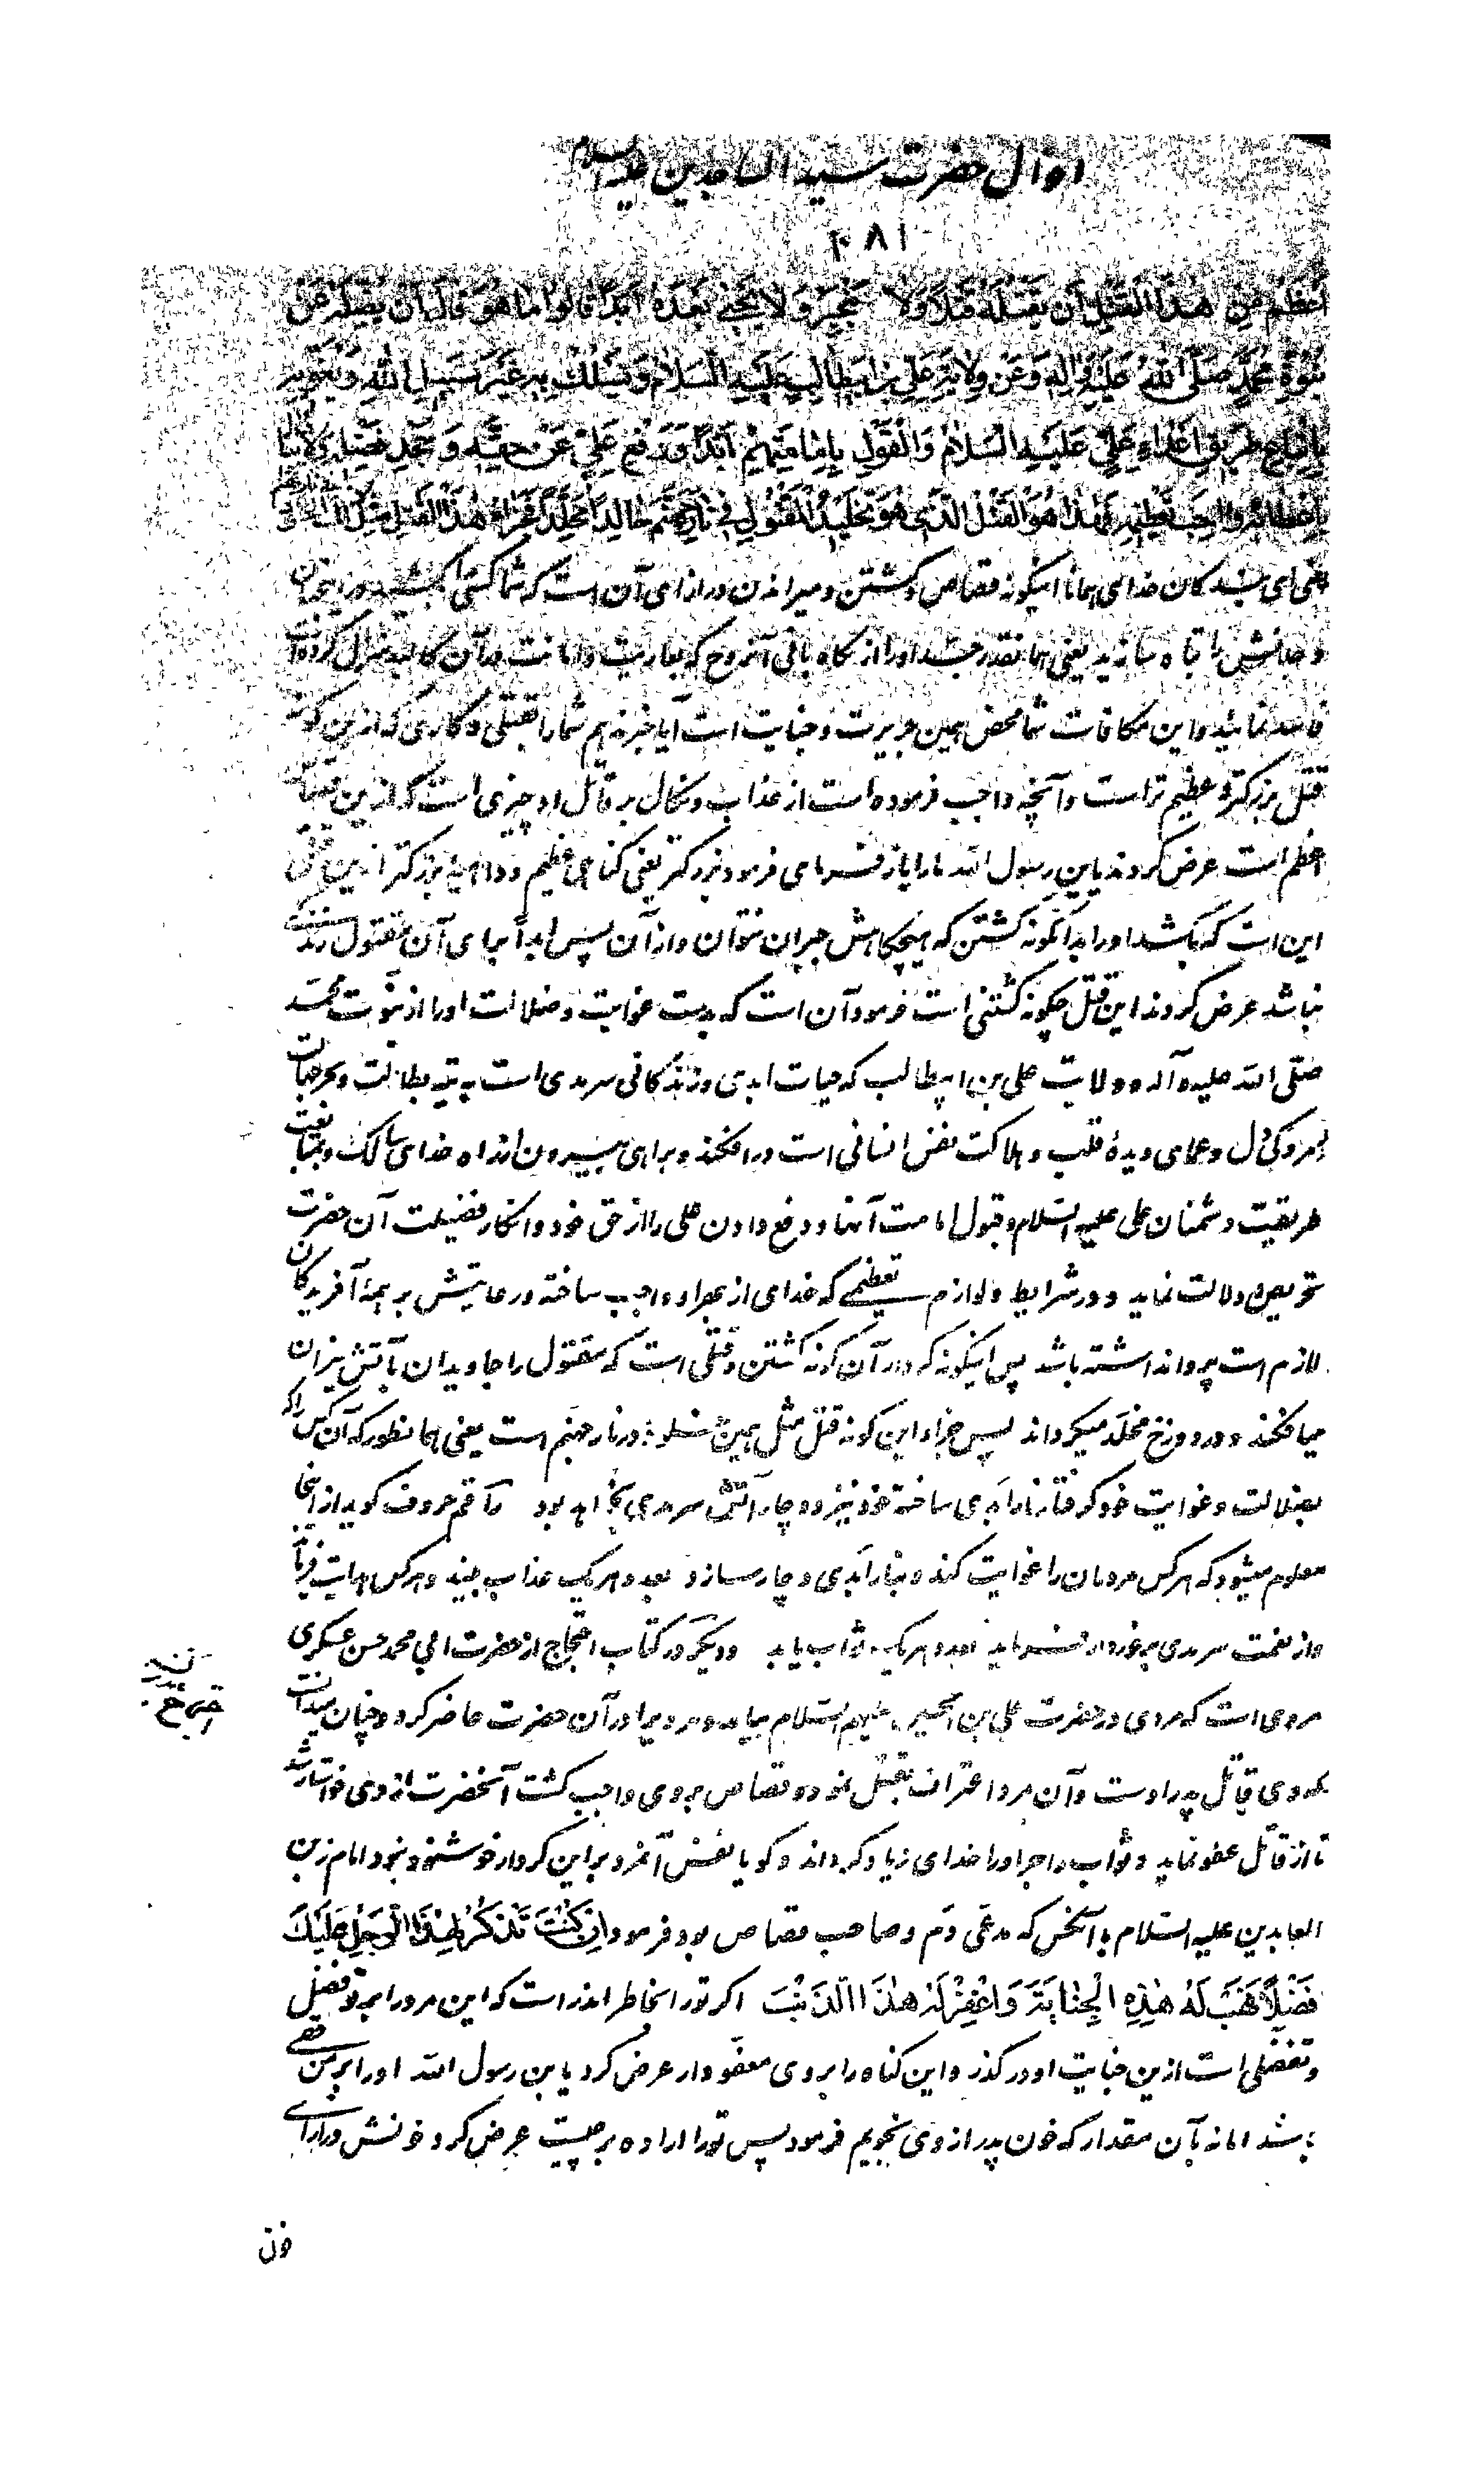 احوال حضرت سید الساجدین علیه السلام
۲۸۱
أَعْظَمُ مِنْ هٰذَا الْقَتْلِ أَنْ يَقْتُلَهُ قَتْلًا وَلَا يَنْجَبِرُ وَلَا يَحْيىٰ بَعْدَهُ أَبَدًا قَالُوا مَا هُوَ قَالَ أَنْ يُضِلَّهُ عَنْ
نُبُوَّةِ مُحَمَّدٍ صَلَّى اللهُ عَلَيْهِ وَآلِهِ وَعَنْ وِلَايَةِ عَلِيِّ بْنِ ابيطَالِبٍ عَلَيْهِ السَّلَامُ وَيَسْلُكَ بِهِ غَيْرَ سَبِيلِ اللهِ وَيُغْوِيَهُ
بِاتِّبَاعِ طَرِيقِ أَعْدَاءِ عَلِيٍّ عَلَيْهِ السَّلَامُ وَالْقَوْلِ بِإِمَامَتِهِمْ أَبَدًا وَدَفْعِ عَلِيٍّ عَنْ حَقِّهِ وَجَحْدِ فَضْلِهِ
وَاجِبِ تَعْظِيمِهِ فَهٰذَا هُوَ الْقَتْلُ الَّذِي هُوَ تَخْلِيدُ الْمَقْتُولِ فِي نَارِ جَهَنَّمَ خَالِدًا مُخَلَّدًا فَجَزَاءُ هٰذَا الْقَتْلِ مِثْلُ
کان خدای همانا اینگونه قصاص و کشتن و میرانیدن در ازای آن است که شما کسی را بکشید
و جانش را تباه سازید یعنی همانقدر او را از نگاه بانی آنروح که بعاریت و امانت در آن کالبد منزل کرده است
نمائید و این مکافات شما محض همین جریرت و جنایت است آیا خبر ندهم شما را بقتلی و کاری که ازین گونه
قتل بزرگتر و عظیم تر است و آنچه واجب فرموده است از عذاب و نکال بر قاتل او چیزی است که ازین
اعظم است عرض کردند یابن رسول الله ما را باز فرمای فرمود بزرگتر یعنی گناهی عظیم و بزرگتر ازین قتل
این است که بکشد او را بدانگونه کشتن که هیچگاهش جبران نتوان و از آن سپس ابداً برای آن مقتول زندگی
نباشد عرض کردند این قتل چگونه کشتنی است فرمود آن است که بدست غوایت و ضلالت او را از نبوت محمد
صلّی الله علیه و آله و ولایت علی بن ابیطالب که حیات ابدی و زندگانی سرمدی است به تیه بطالت و بحر جهالت
دل و عمای دیدۀ قلب و هلاکت نفس انسانی است درافکند و براهی بیرون از راه خدای سالک و بمتابعت
طریقت دشمنان علی علیه السلام و قبول امامت آنها و دفع دادن علی را از حق خود و انکار فضیلت آن حضرت
تحریص و دلالت نماید و در شرایط و لوازم تعظیمی که خدای از بهر او واجب ساخته و رعایتش بر همۀ آفریدگان
لازم است پروا نداشته باشد پس اینگونه کردار آن گونه کشتن و قتلی است که مقتول را جاویدان بآتش نیران
میافکند و در دوزخ مخلّد میگرداند پس جزاء این گونه قتل مثل همین خلود در نار جهنم است یعنی همانطور که آن کس را که
بضلالت و غوایت خود گرفتار نار ابدی ساخته خود نیز دوچار آتش سرمدی بخواهد بود راقم حروف گوید از اینجا
معلوم میشود که هر کس مردمان را غوایت کند و بنار ابدی دچار سازد بعدد هر یک عذاب بیند و هر کس هدایت فرماید
و از نعمت سرمدی برخوردار فرماید بعدد هر یک ثواب یابد و دیگر در کتاب احتجاج از حضرت ابی محمد حسن عسکری
مروی است که مردی در حضرت علی بن الحسین علیهم السلام بیامد و مردیرا در آن حضرت حاضر کرد و چنان میدانست
که وی قاتل پدر اوست و آن مرد اعتراف بقتل نمود و قصاص بر وی واجب گشت آنحضرت از وی خواستار شد
تا از قاتل عفو نماید و ثواب و اجر او را خدای زیاد گرداند و گویا نفس آنمرد بر این کردار خوشنود نبود امام زین
العابدین علیه السلام با آنکس که مدّعی دم و صاحب قصاص بود فرمود إِنْ كُنْتَ تَذْكُرُ لِهٰذَا الرَّجُلِ عَلَيْكَ
فَضْلًا فَهَبْ لَهُ هٰذِهِ الْجِنَايَةَ وَاغْفِرْ لَهُ هٰذَا الذَّنْبَ اگر تو را بخاطر اندر است که این مرد را بر تو فضل
و تفضّلی است ازین جنایت او درگذر و این گناه را بر وی معفو دار عرض کرد یابن رسول الله او را بر من حقی
باشد اما نه بآن مقدار که خون پدر از وی نجویم فرمود پس تو را اراده بر چیست عرض کرد خونش در ازای
خون